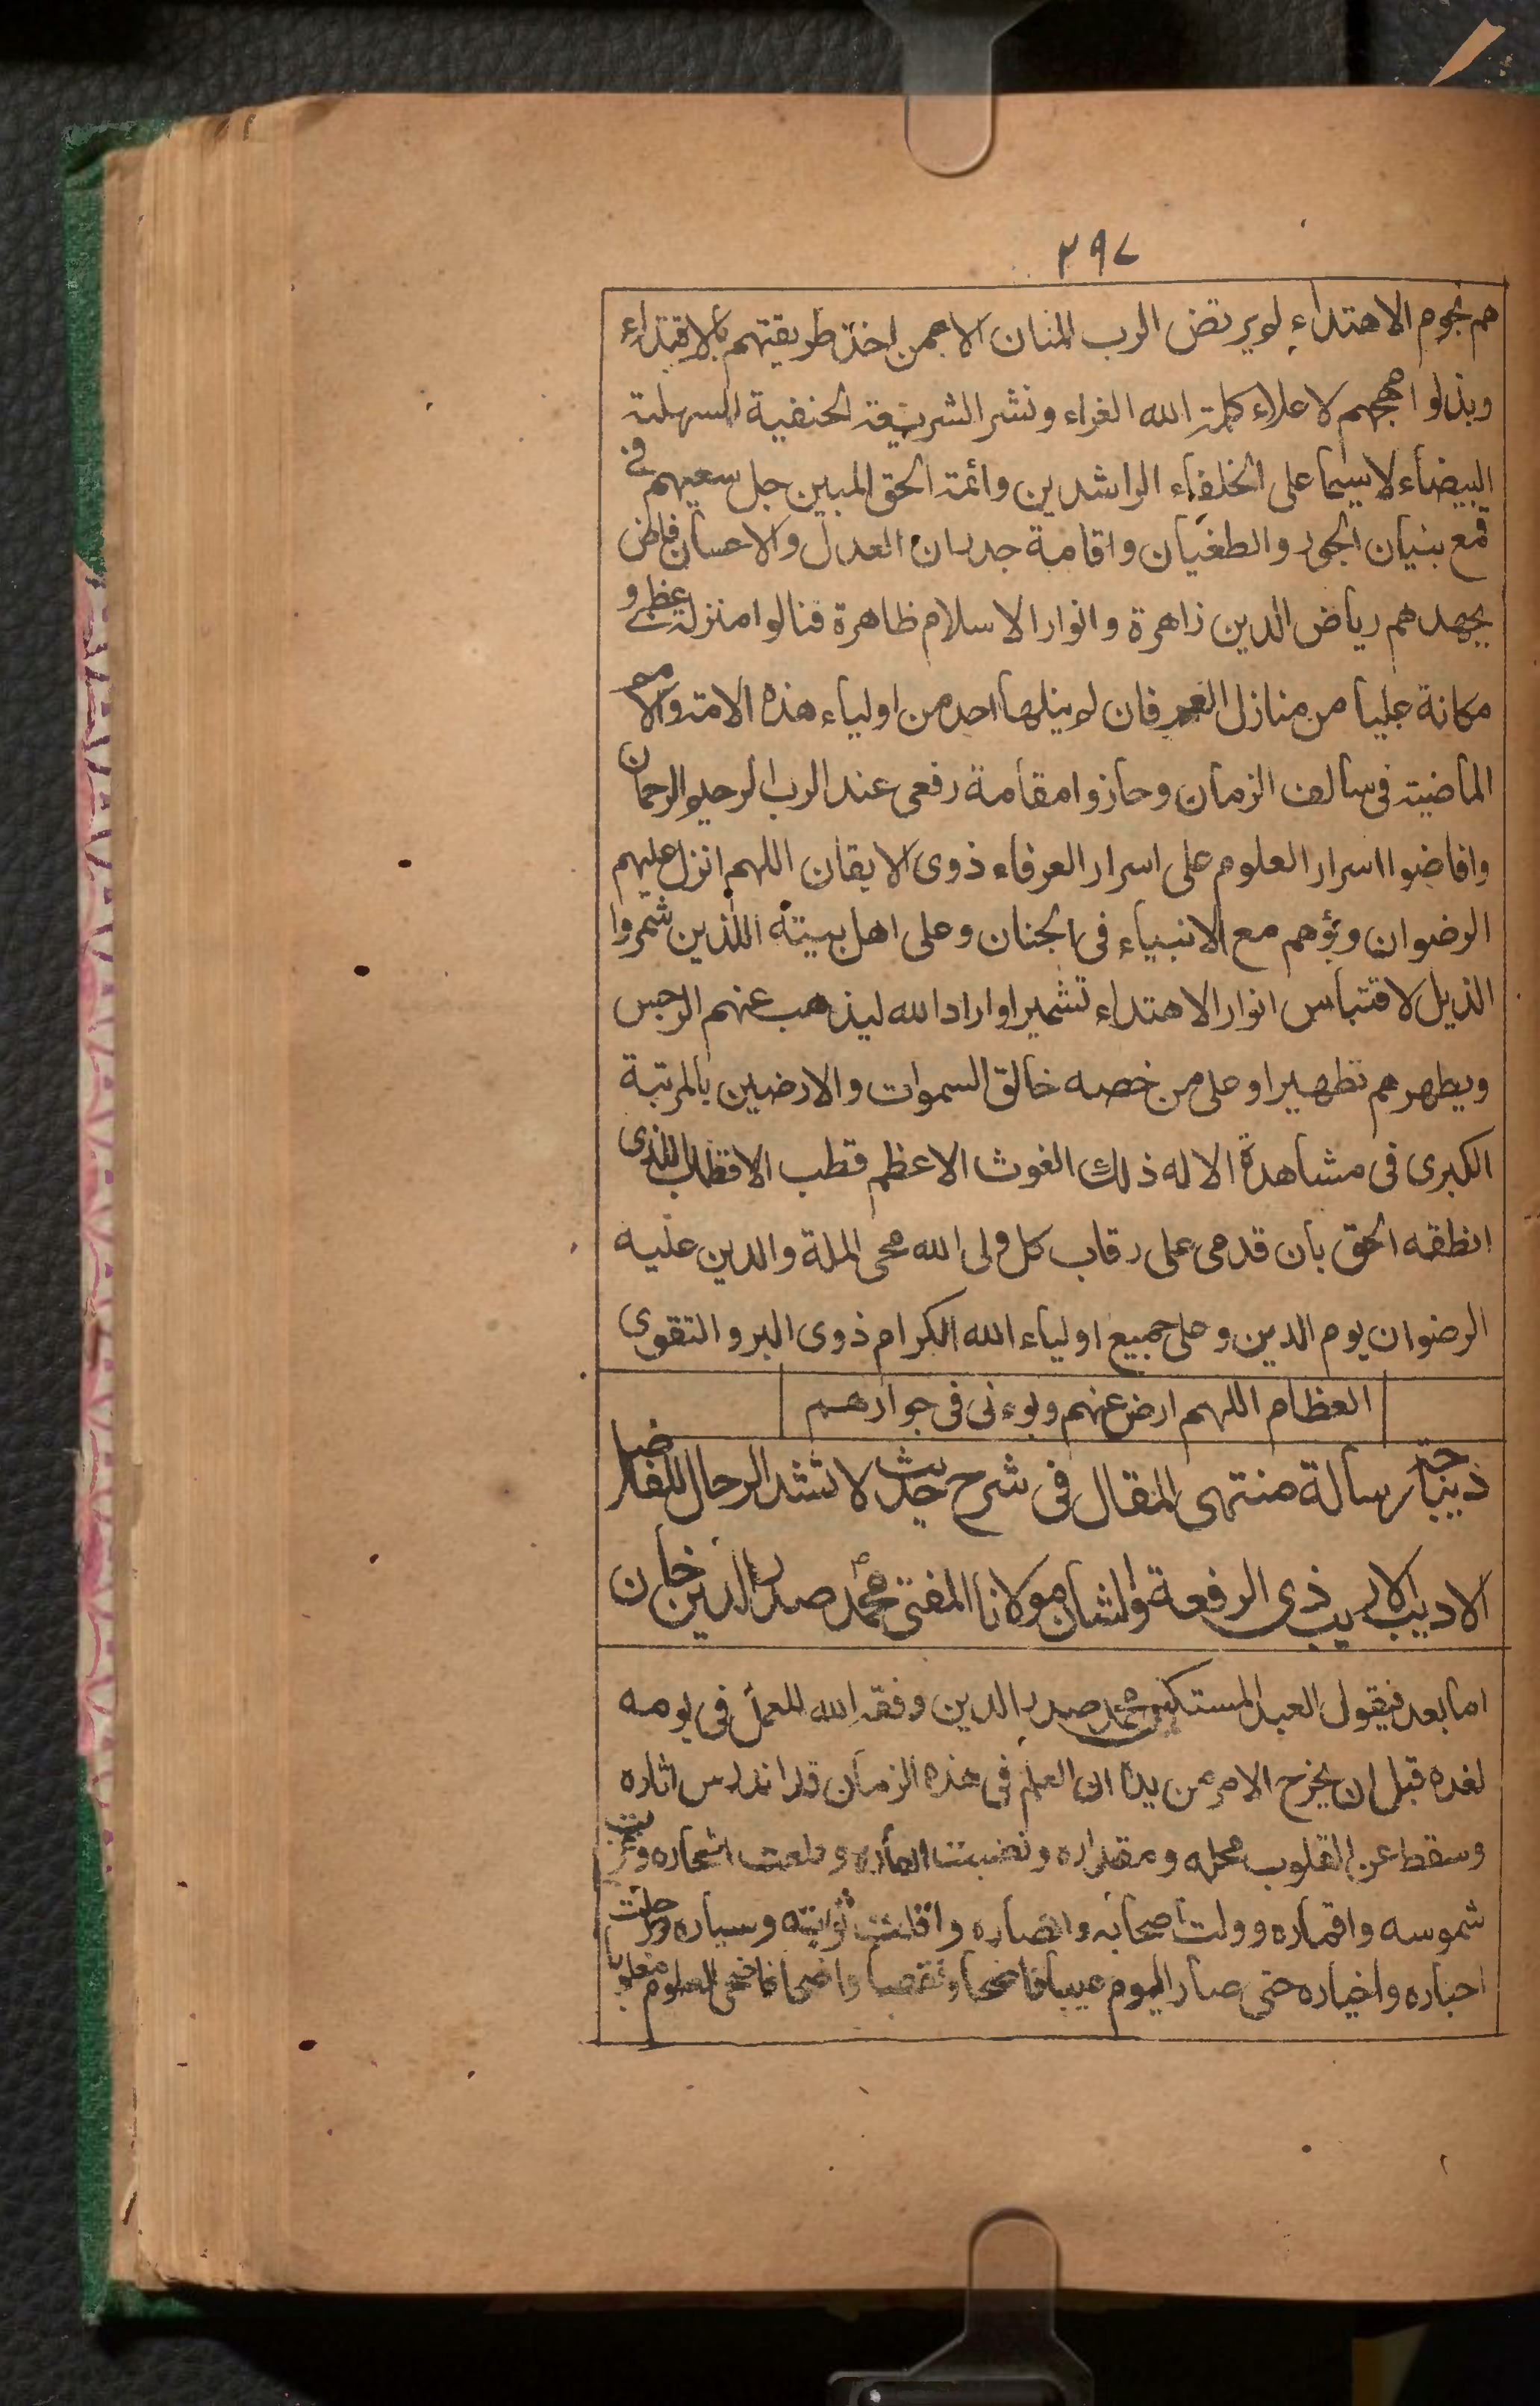 ٢٩٧
هم نجوم الاهتداء لم يرتض الرب المنان الا عمن اخذ طريقتهم بالاقتداء
وبذلوا مهجهم لاعلاء كلمة الله الغراء ونشر الشريعة الحنفية السهلة
البيضاء لا سيما على الخلفاء الراشدين وائمة الحق المبين جل سعيهم في
قمع بنيان الجور والطغيان واقامة جدران العدل والاحسان فاض
بجهدهم رياض الدين زاهرة وانوار الاسلام ظاهرة فنالوا منزلة عظمى و
مكانة عليا من منازل العرفان لم ينلها احد من اولياء هذه الامة والامم
الماضية في سالف الزمان وحازوا مقامة رفعى عند الرب الرحيم الرحمان
وافاضوا اسرار العلوم على اسرار العرفاء ذوى الايقان اللهم انزل عليهم
الرضوان وبؤهم مع الانبياء في الجنان وعلى اهل بيته اللذين شمروا
الذيل لاقتباس انوار الاهتداء تشميرا واراد الله ليذهب عنهم الرجس
ويطهرهم تطهيرا وعلى من خصه خالق السموات والارضين بالمرتبة
الكبرى في مشاهدة الاله ذلك الغوث الاعظم قطب الاقطاب الذى
انطقه الحق بان قدمى على رقاب كل ولى الله محى الملة والدين عليه
الرضوان يوم الدين وعلى جميع اولياء الله الكرام ذوى البر والتقوى
العظام اللهم ارض عنهم وبوءنى في جوارهم
ديباجة رسالة منتهى المقال في شرح حديث لا تشد الرحال للفاضل
الاديب الاريب ذى الرفعة والشان مولانا المفتى محمد صدر الدين خان
اما بعد فيقول العبد المستكين محمد صدر الدين وفقه الله للعمل في يومه
لغده قبل ان يخرج الامر من يده ان العلم في هذه الزمان قد اندرس اثاره
وسقط عن القلوب محله ومقداره ونضبت انهاره وقلعت اشجاره وغربت
شموسه واقماره وولت اصحابه وانصاره وافلت ثوابته وسياره ورحلت
احباره واخياره حتى صار اليوم عيبا فاضحا ونقصا واضحا فاضحى العلوم